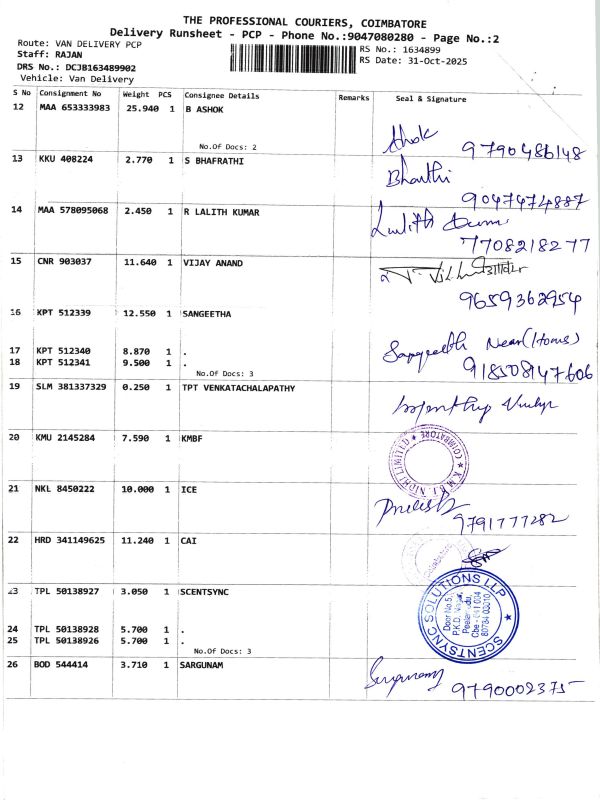 THE PROFESSIONAL COURIERS, COIMBATORE
Delivery Runsheet - PCP - Phone No.:9047080280 - Page No.:2
Route: VAN DELIVERY PCP
RS No.: 1634899
Staff: RAJAN
RS Date: 31-Oct-2025
DRS No.: DCJB163489902
Vehicle: Van Delivery
S No Consignment No Weight PCS Consignee Details Remarks Seal & Signature
12 MAA 653333983 25.940 1 B ASHOK
No.Of Docs: 2
Ashok 9790486148
13 KKU 408224 2.770 1 S BHAFRATHI
Bharthi
9047474887
14 MAA 578095068 2.450 1 R LALITH KUMAR
Lalith Kumar
7708218277
15 CNR 903037 11.640 1 VIJAY ANAND
9659362954
16 KPT 512339 12.550 1 SANGEETHA
Sangeeth Near (Home)
17 KPT 512340 8.870 1 .
18 KPT 512341 9.500 1 .
No.Of Docs: 3
918508147606
19 SLM 381337329 0.250 1 TPT VENKATACHALAPATHY
20 KMU 2145284 7.590 1 KMBF
K.M.B.F. NIDHI LIMITED
COIMBATORE
21 NKL 8450222 10.000 1 ICE
9791777282
22 HRD 341149625 11.240 1 CAI
23 TPL 50138927 3.050 1 SCENTSYNC
SCENTSYNC SOLUTIONS LLP
Door No.5,
P.K.D. Nagar,
Peelamedu,
Cbe - 641 004
24 TPL 50138928 5.700 1 .
25 TPL 50138926 5.700 1 .
No.Of Docs: 3
26 BOD 544414 3.710 1 SARGUNAM
Sargunam 9790002375